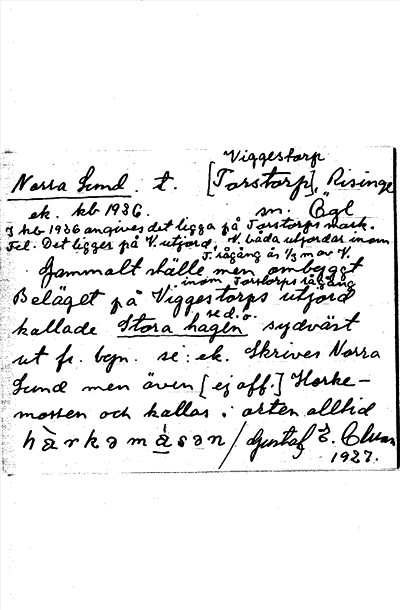 Viggestorp
Norra Sund. t. [Torstorp], Risinge
ek. kb 1936. sn. Ögl
I kb 1936 angives det ligga på Torstorps mark.
Fel. Det ligger på V. utjord, V. båda utjordar inom
T. rågång är 1/3 m av V.
Gammalt ställe men ombyggt
inom Torstorps rågång
Beläget på Viggestorps utjord
se d.o.
kallade Stora hagen sydväst
ut fr. byn. se: ek. Skrives Norra
Sund men även [ej off.] Horke-
mossen och kallas i orten alltid
hàrkəmåsən / Gustaf E.
1927.